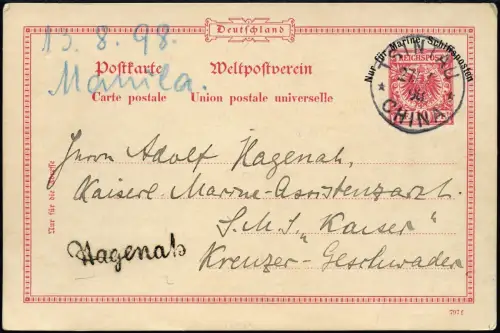 Deutschland
13.8.98.
Manila.
Postkarte Weltpostverein
Carte postale Union postale universelle
Nur für Marine-Schiffsposten
REICHSPOST
TSINTAU
27
98
* CHINA *
Nur für die Adresse
Herrn Adolf Hagenah,
Kaiserl. Marine-Assistenzarzt.
S.M.S. „Kaiser“
Kreuzer-Geschwader
Hagenah
797f